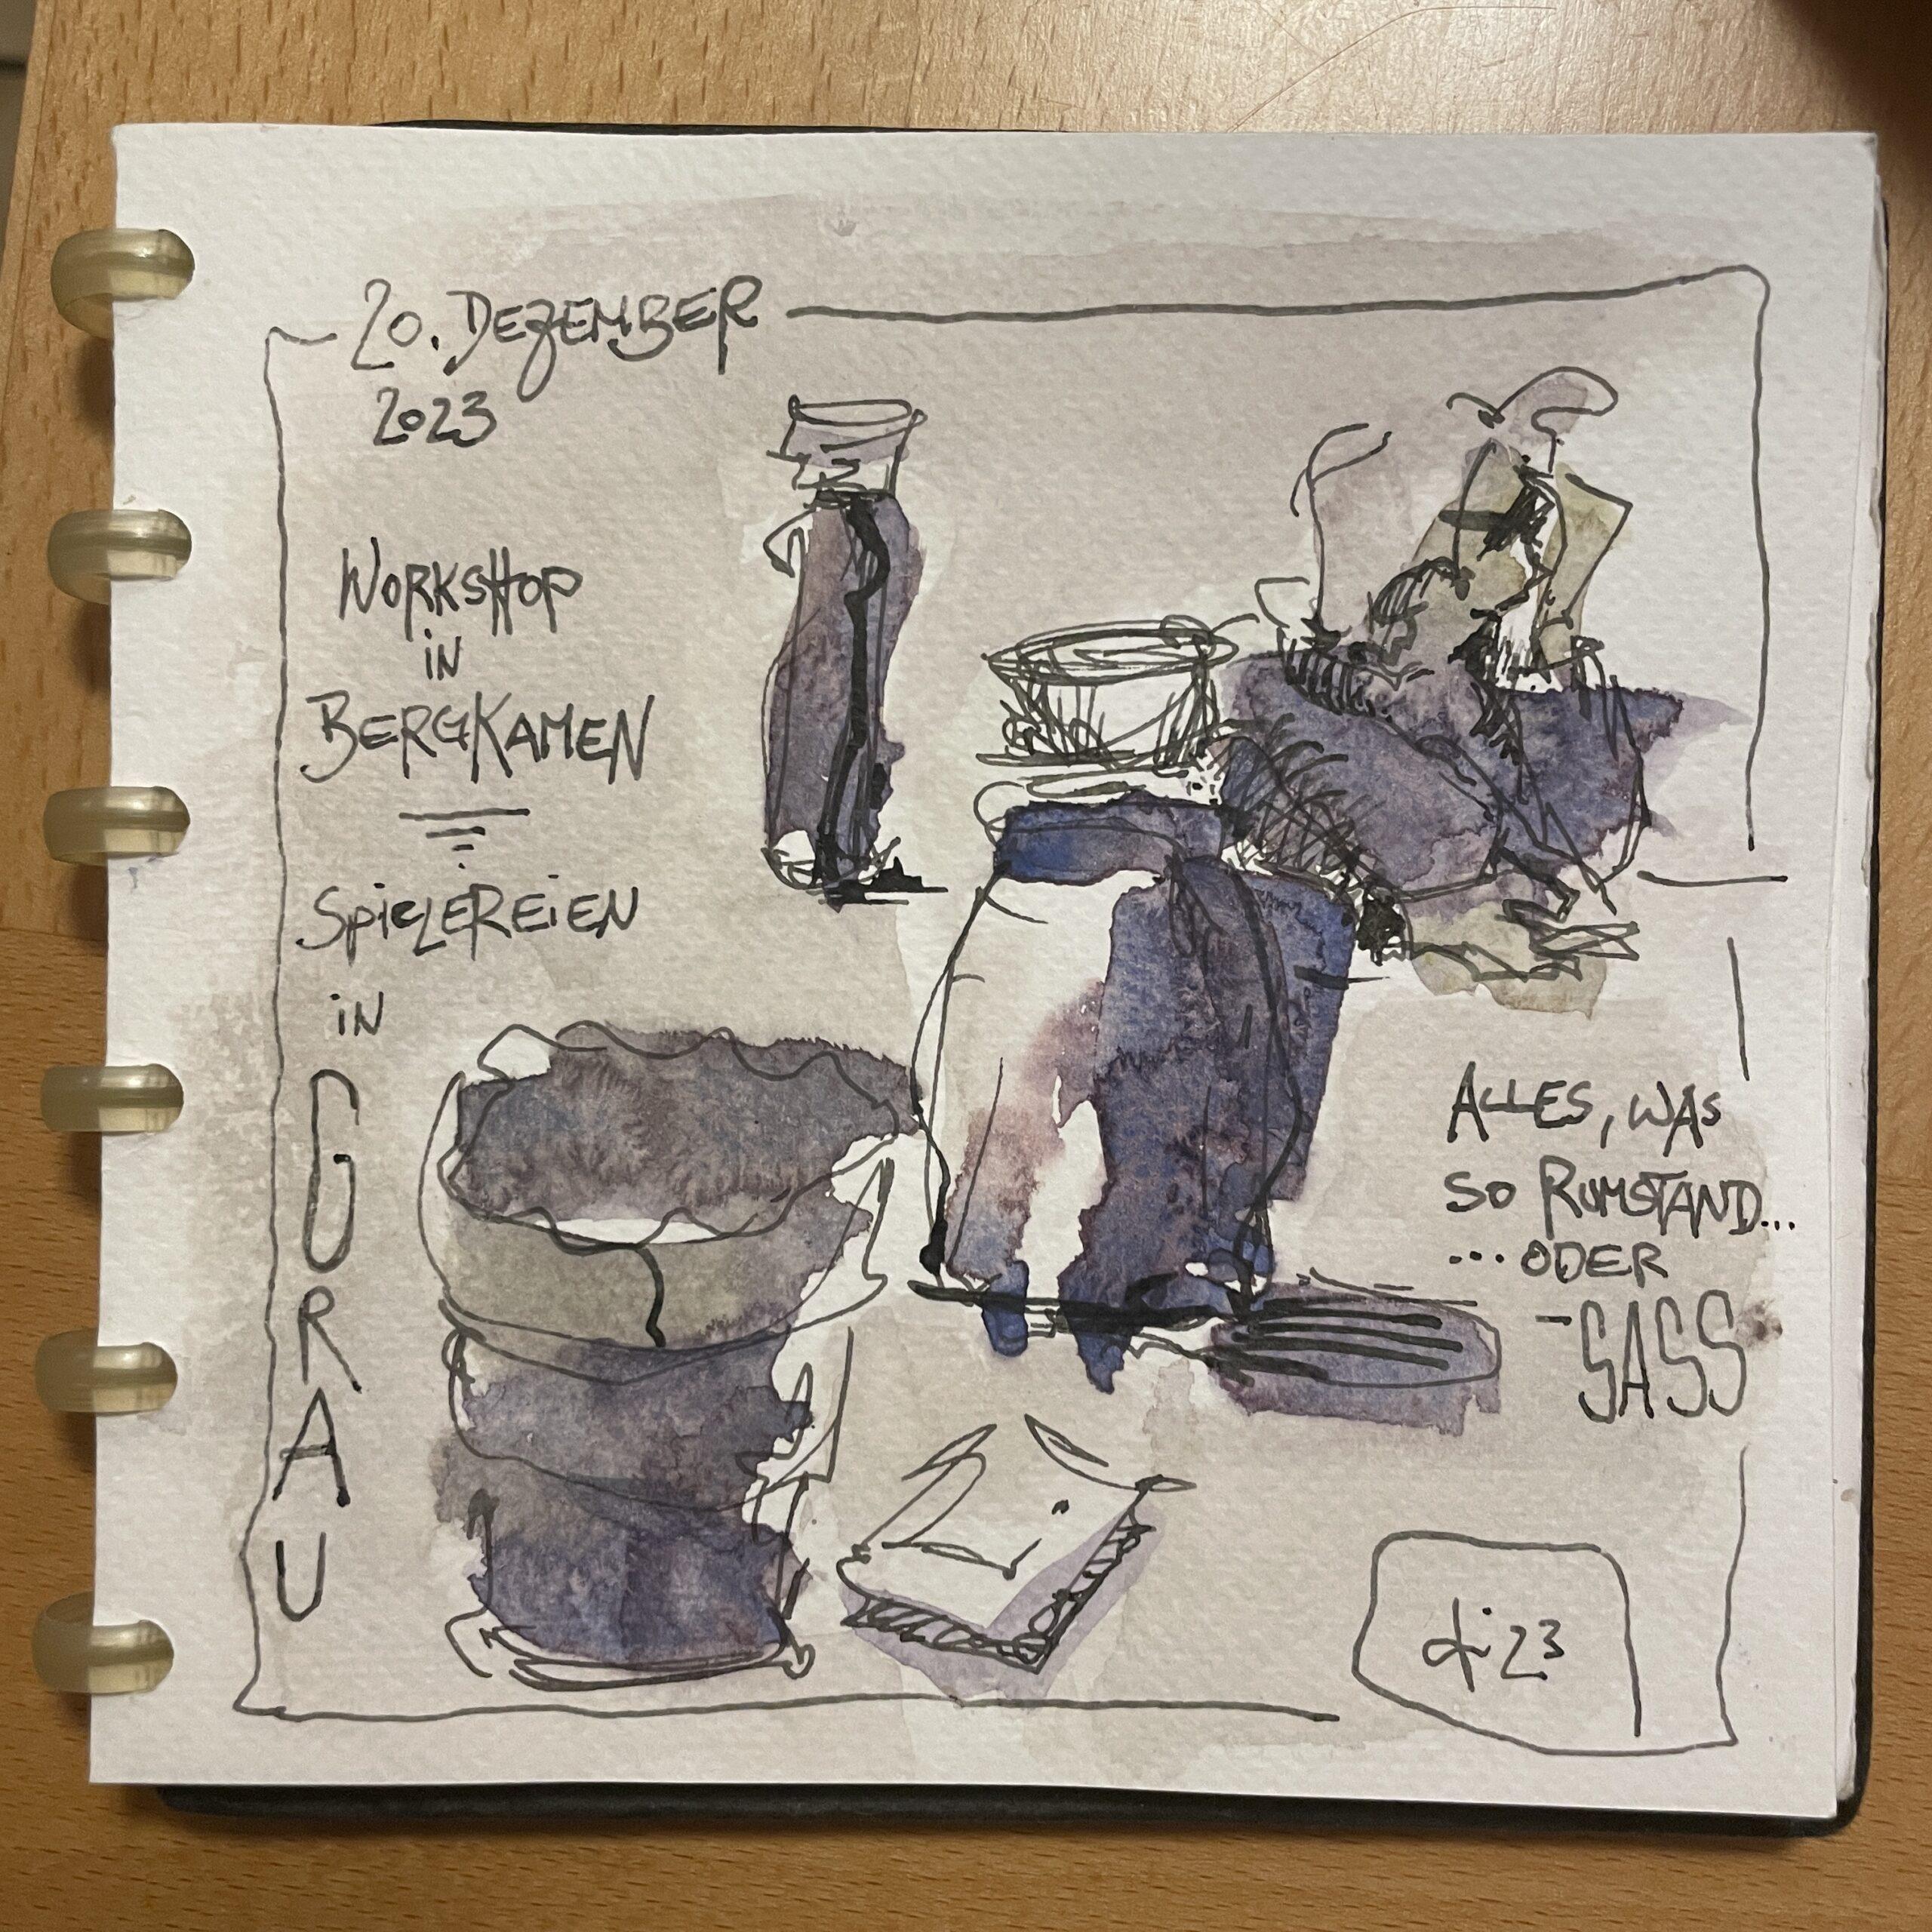 20. DEZEMBER
2023
WORKSHOP
iN
BERGKAMEN
SPiELEREiEN
iN
GRAU
ALLES, WAS
SO RUMSTAND...
...ODER
-SASS
di 23